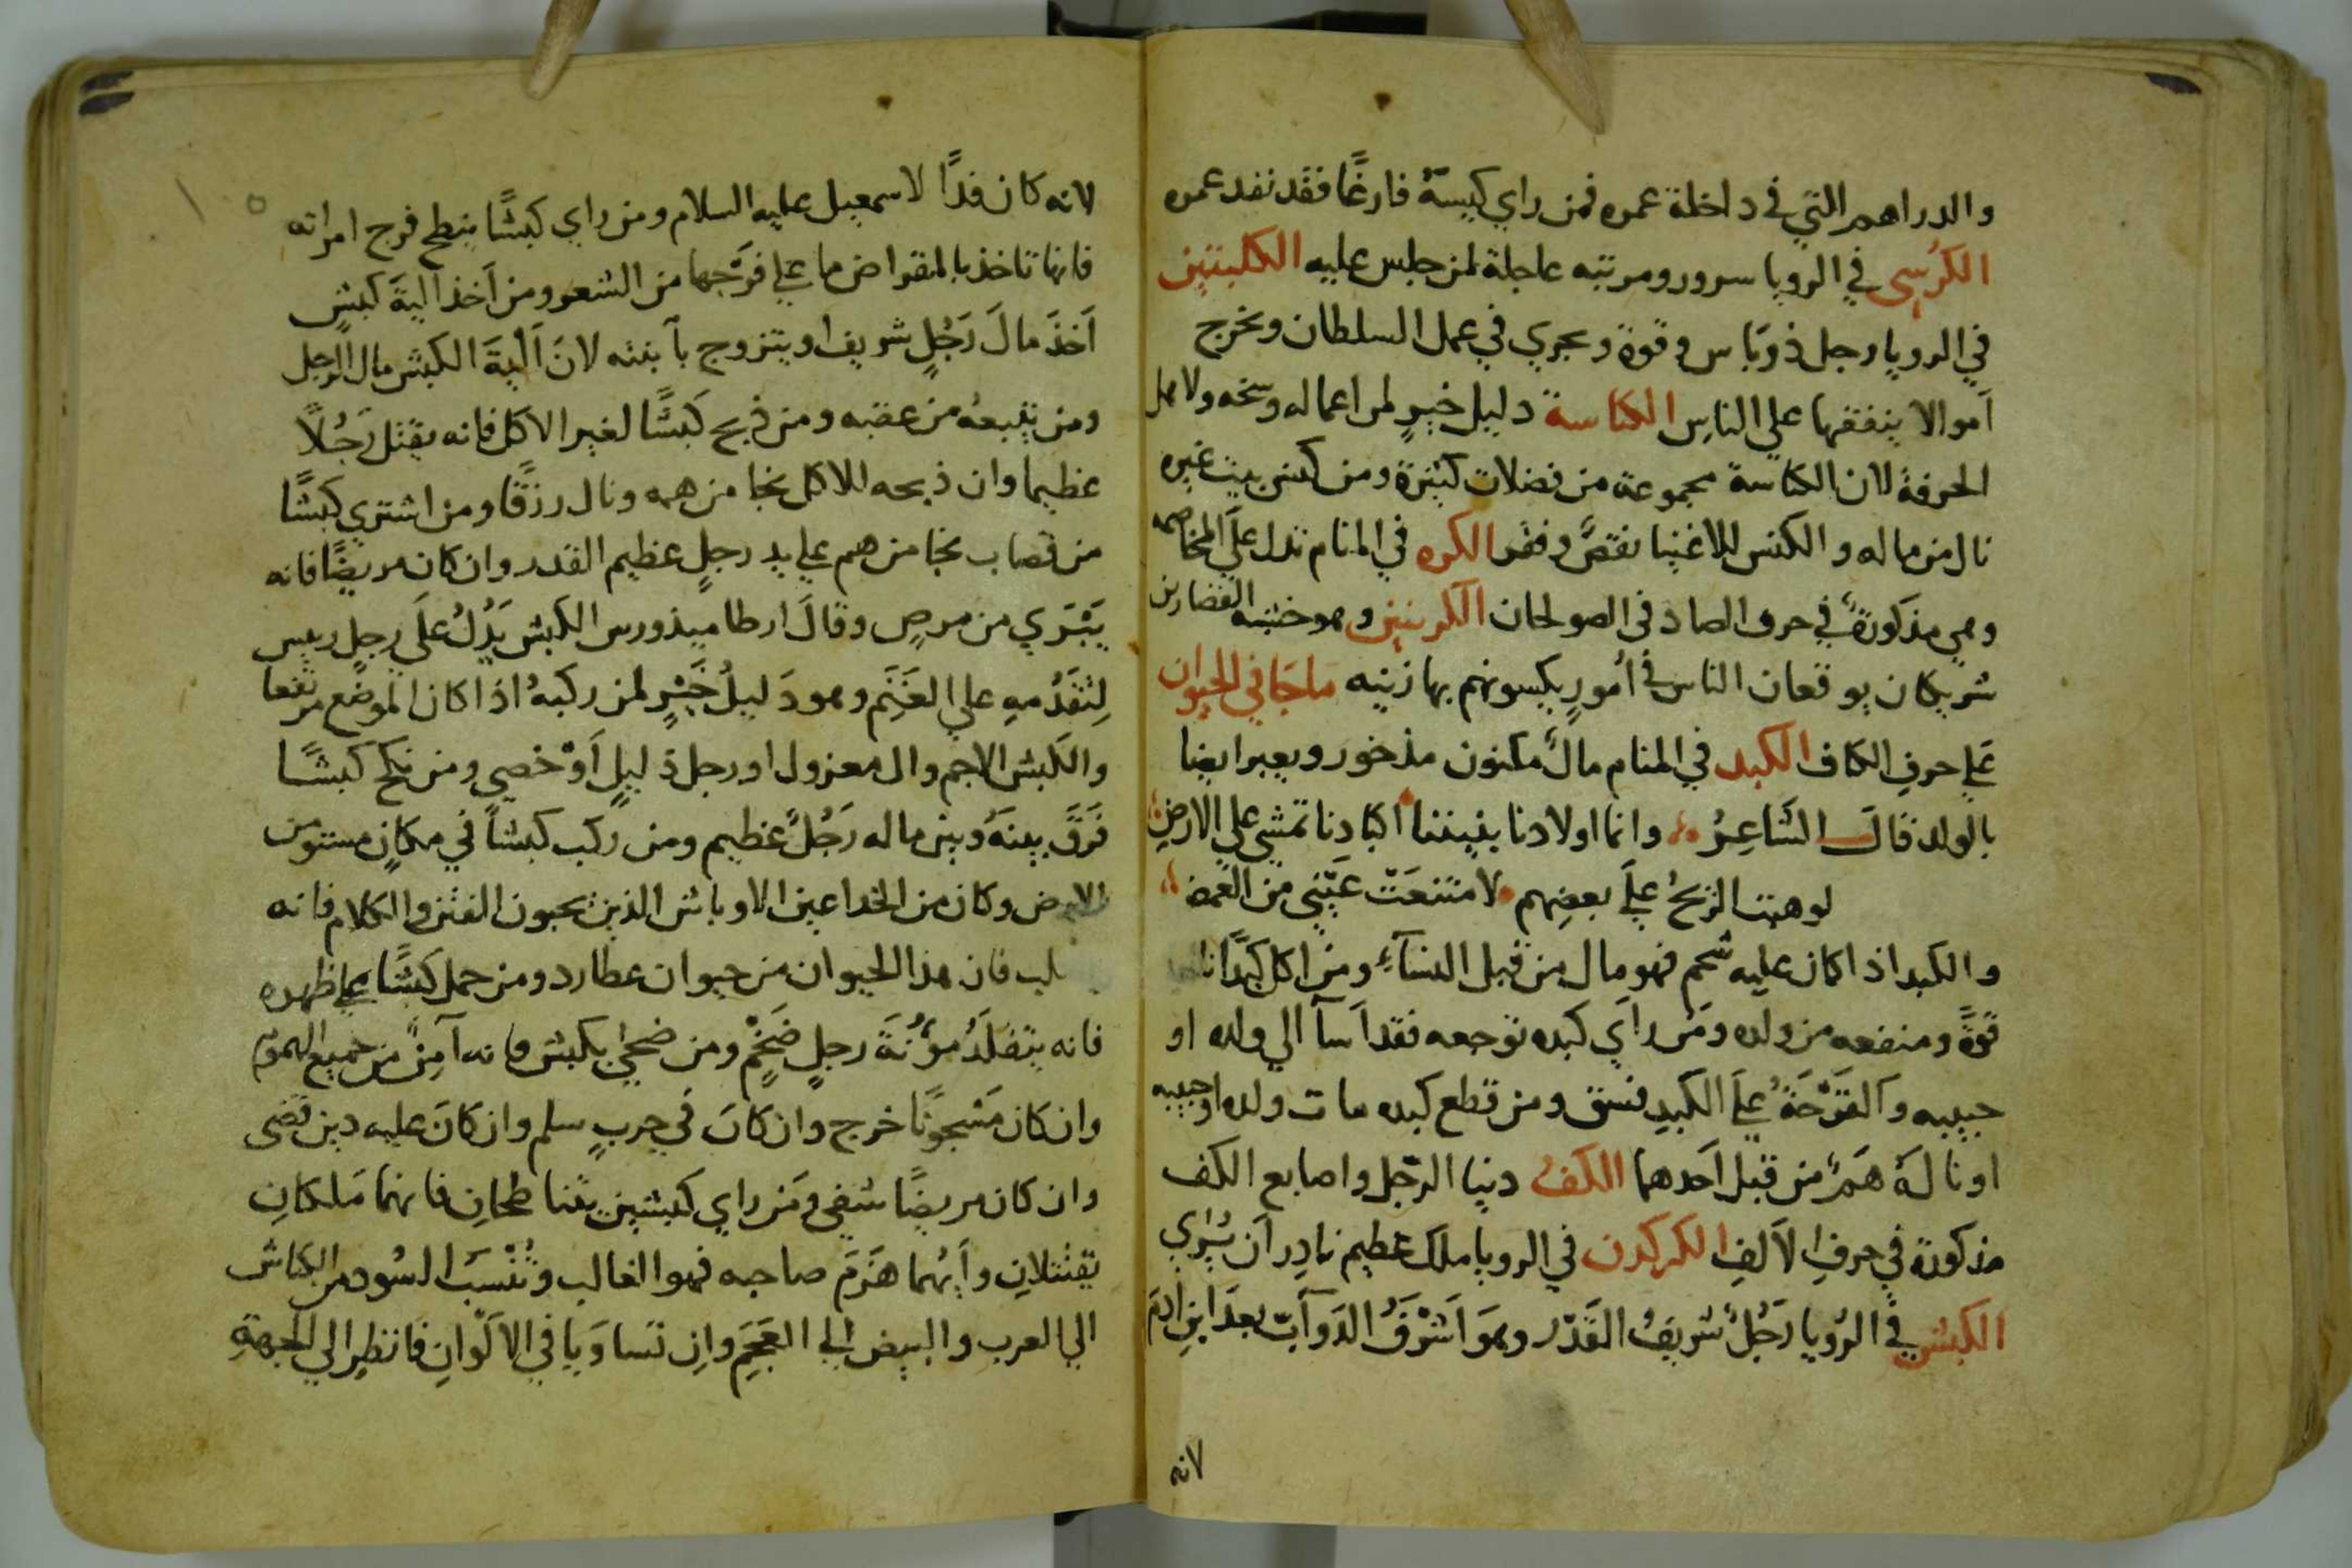 والدراهم التي في داخلة عمره فمن راي كيسهٌ فارغًا فقد نفد عمره
الكرُسي في الرويا سرور ومرتبه عاجلة لمن جلس عليه الكلبتين
في الرويا رجل ذو بَاس وقوة ويجري في عمل السلطان ويخرج
اَموالا ينفقها علي الناسِ الكناسة دليل خيرٍ لمن اعماله وسخه ولاهل
الحرفة لان الكناسة مجموعة من فضلات كثيرة ومن كنس بيت غيره
نال من ماله والكنس للاغنيا نقصٌ وفقر الكره في المنام تدل علي المخاصمه
وهي مذكورةٌ في حرف الصاد في الصولجان الكرنيبن وهو خشبه القصارين
شريكان يوقعان الناس في اُمورٍ يكسونهم بها زينه ماجَا في الحيوان
عَلي حرفِ الكاف الكبد في المنام مالٌ مكنون مذخور ويعبر ايضا
بالولد قالَ الشَاعِرُ وانما اولادنا بيننا اكبادنا تمشي علي الارضِ
لو هبت الريحُ عَلَي بعضِهم لامتنعَتْ عَيْنِي من الغمضِ
والكبد اذا كان عليه شحم فهو مال من قبل النسآءِ ومن اكل كَبِدًا نال
قوةً ومنفعه من ولده ومَن راَي كبده توجعه فقد اَسآ الي ولده او
حبيبه وَالقَرْحَةُ علَي الكبدِ فسق ومن قطع كبده مات ولده او حبيبه
او نالهُ هَمٌ من قبل اَحدهما الكفُ دنيا الرجل واصابع الكف
مذكورة في حرفِ الاَلفِ الكركدن في الرويا ملك عظيم نادِر اَن يُرَي
الكبشُ في الرُويا رَجُلٌ شريفُ القَدْر وهوَ اَشْرَفُ الدَوآبِ بعدَ ابنِ ادَمَ
لانه
لانه كان فدًا لاسمعيل عليه السلام ومن راي كبشًا ينطح فرج امراته
فانها تاخذ بالمقراض ما علي فَرْجها من الشعر ومن اَخذ اَليةَ كبشٍ
اَخذَ مالَ رَجُلٍ شريف او يتزوج بابنته لانَ اَلْيةَ الكبش مال الرجل
ومن يتبعهُ من عقبه ومن ذبح كَبشًا لغير الاكل فانه يقتل رَجُلاً
عظيما وان ذبحه للاكل نجا من همه ونال رزقًا ومن اشتري كَبشًا
من قصاب نجا من هم علي يد رجلٍ عظيم القدر وان كان مريضًا فانه
يَبْرَي من مرضٍ وقالَ ارطاميذورس الكبش يَدُلُ علَي رجلٍ رييس
لِتَقَدُمهِ علي الغَنَمِ وهو دَليلُ خَيْرٍ لمن ركبهُ اذا كان الموضع مرتفعا
والكَبش الاجم وال معزول او رجل ذليلٍ اَوْ خصي ومن نكح كبشًا
فَرَقَ بينَهُ وبين ماله رَجُلٌ عظيم ومن ركب كبشًا في مكانٍ مستو من
الارض وكان من الخداعين الاوباش الذين يحبون الفتن والكلام فانه
فان هذا الحيوان من حيوان عطارد ومن حمل كَبشًا علي ظهره
فانه يتقلَدُ مؤُنَةَ رجلٍ ضَخْمٍ ومن ضحي بكبش فانه آمِنٌ من جميع الهموم
وان كان مَسْجونًا خرج وان كانَ في حربٍ سلم وان كانَ عليه دين قضي
وان كان مريضًا شفي ومَن راي كَبشين يتناطحانِ فانهما مَلكانِ
يقتتلانِ واَيُهما هَزَمَ صاحبه فهو الغالب وتُنْسَبُ السُود من الكباش
الي العرب والبيض الي العَجَمِ وان تساوَيا في الاَلْوانِ فانظر الي الجهةِ